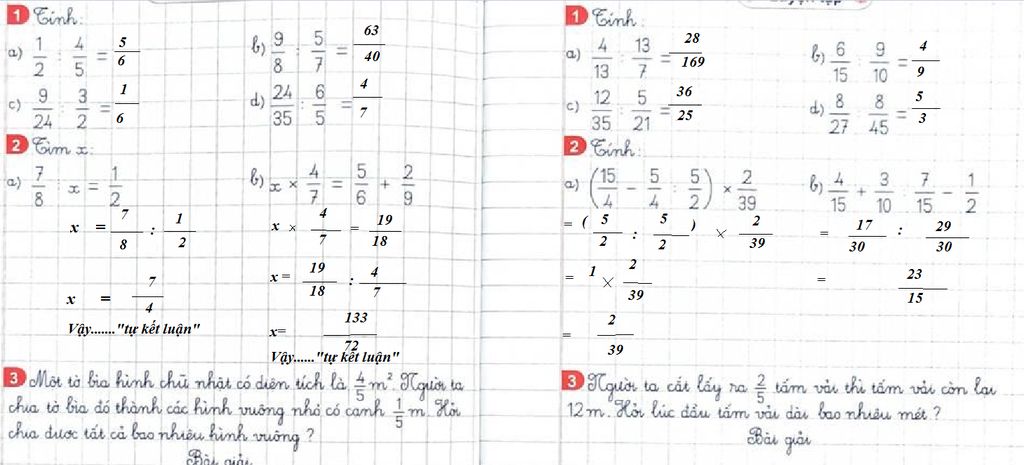 1 Tính:
a) 1/2 : 4/5 = 5/6
b) 9/8 : 5/7 = 63/40
c) 9/24 : 3/2 = 1/6
d) 24/35 : 6/5 = 4/7
2 Tìm x:
a) 7/8 : x = 1/2
x = 7/8 : 1/2
x = 7/4
Vậy......."tự kết luận"
b) x × 4/7 = 5/6 + 2/9
x × 4/7 = 19/18
x = 19/18 : 4/7
x= 133/72
Vậy......"tự kết luận"
3 Một tờ bìa hình chữ nhật có diện tích là 4/5 m². Người ta
chia tờ bìa đó thành các hình vuông nhỏ có cạnh 1/5 m. Hỏi
chia được tất cả bao nhiêu hình vuông ?
Bài giải
1 Tính:
a) 4/13 : 13/7 = 28/169
b) 6/15 : 9/10 = 4/9
c) 12/35 : 5/21 = 36/25
d) 8/27 : 8/45 = 5/3
2 Tính:
a) (15/4 - 5/4 : 5/2) × 2/39
= ( 5/2 : 5/2 ) × 2/39
= 1 × 2/39
= 2/39
b) 4/15 + 3/10 : 7/15 - 1/2
= 17/30 : 29/30
= 23/15
3 Người ta cắt lấy ra 2/5 tấm vải thì tấm vải còn lại
12 m. Hỏi lúc đầu tấm vải dài bao nhiêu mét ?
Bài giải